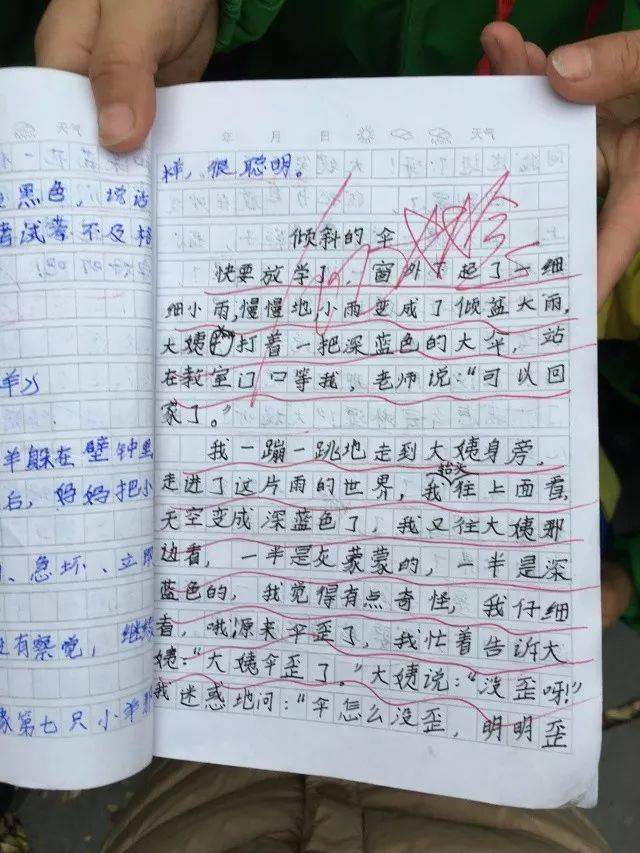 黑色，
考试考不及格
羊》
羊躲在壁钟里
后，妈妈把小
、急坏、立即
有察觉，继续
第七只小羊
年 月 日 天气
样，很聪明。
倾斜的伞
快要放学了，窗外下起了一细
细小雨，慢慢地，小雨变成了倾盆大雨，
大姨打着一把深蓝色的大伞，站
在教室门口等我，老师说：“可以回
家了。”
我一蹦一跳地走到大姨身旁，
走进了这片雨的世界，我抬头往上面看，
天空变成深蓝色了，我又往大姨那
边看，一半是灰蒙蒙的，一半是深
蓝色的，我觉得有点奇怪，我仔细
看，哦！原来伞歪了，我忙着告诉大
姨：“大姨伞歪了。”大姨说：“没歪呀！”
我迷惑地问：“伞怎么没歪，明明歪